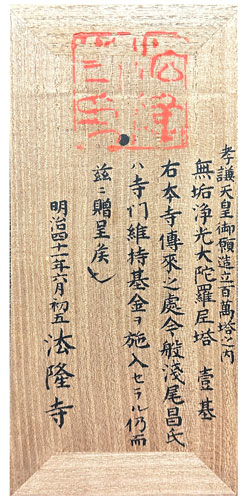 孝謙天皇御願造立百萬塔之内
無垢浄光大陀羅尼塔　壹基
右本寺傳來之處今般淺尾昌氏
ハ寺门維持基金ヲ施入セラル仍而
玆ニ贈呈矦也
明治四十一年六月初五　法隆寺